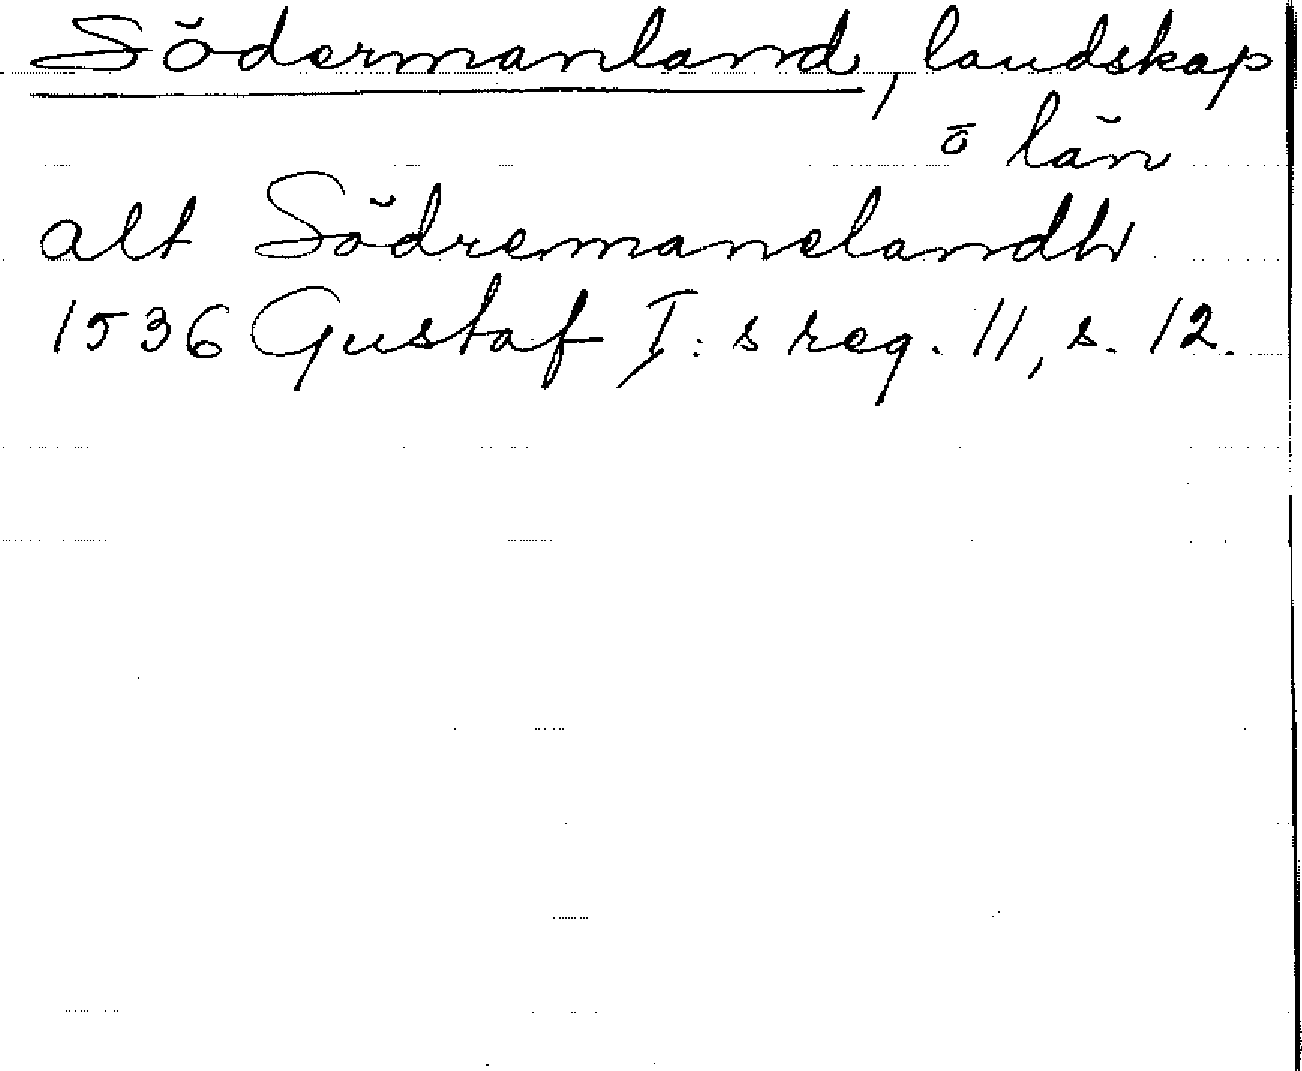 Södermanland, landskap
o län
alt Södremanelandh
1536 Gustaf I:s reg. 11, s. 12.